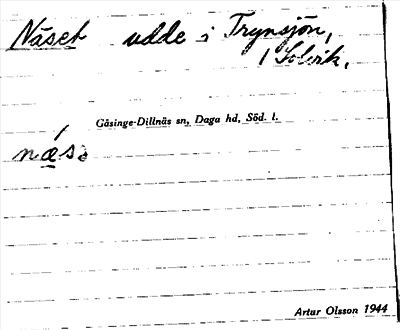 Näset udde i Trynsjön,
1 Solvik.
Gåsinge-Dillnäs sn, Daga hd, Söd. l.
Artur Olsson 1944